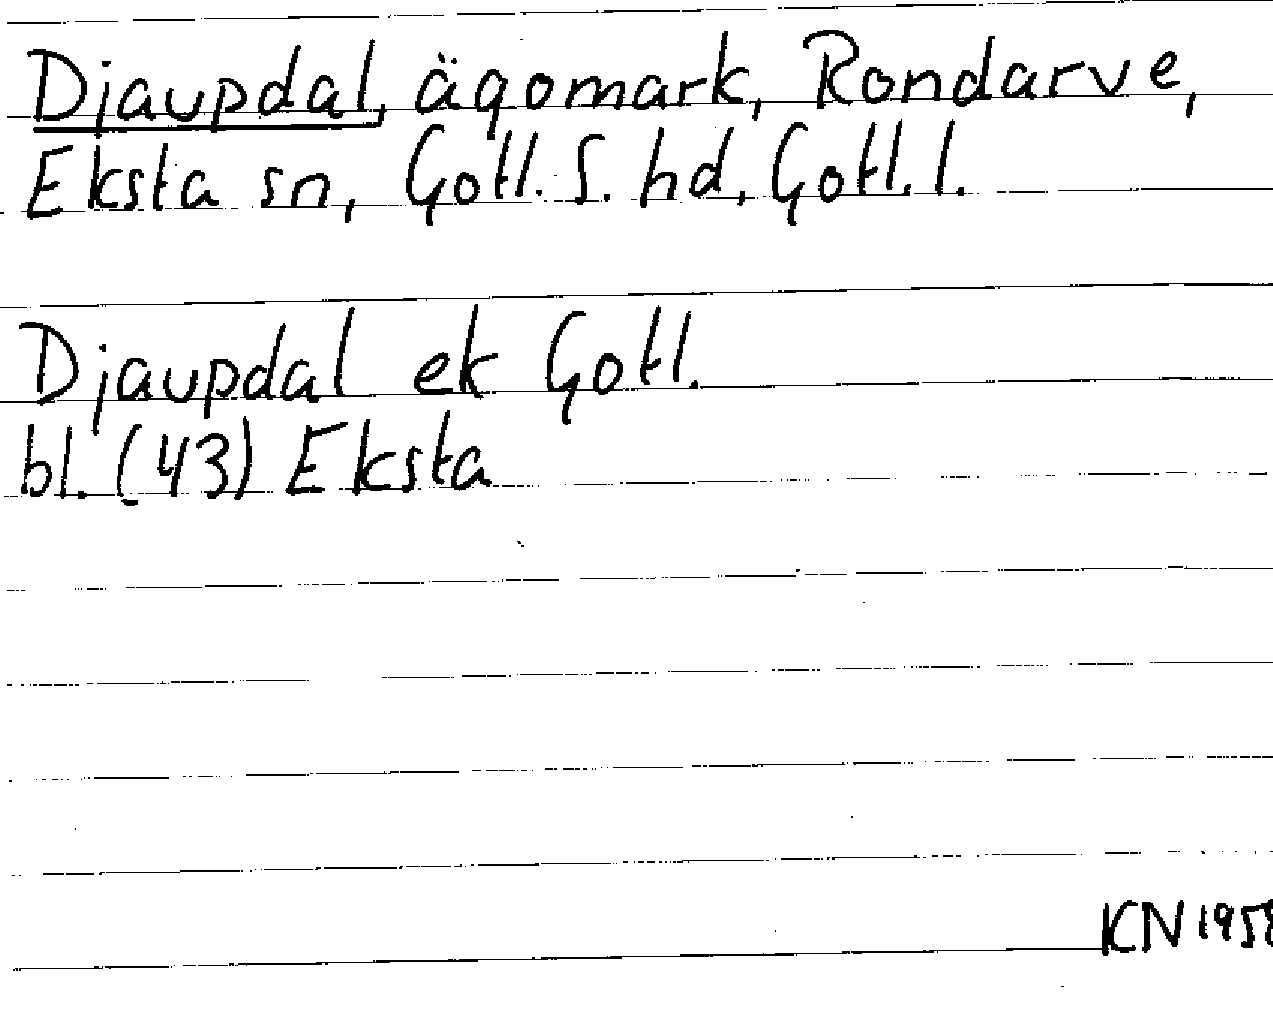 Djaupdal, ägomark, Rondarve,
Eksta sn, Gotl. S. hd, Gotl. l.
Djaupdal ek Gotl.
bl. (43) Eksta
KN